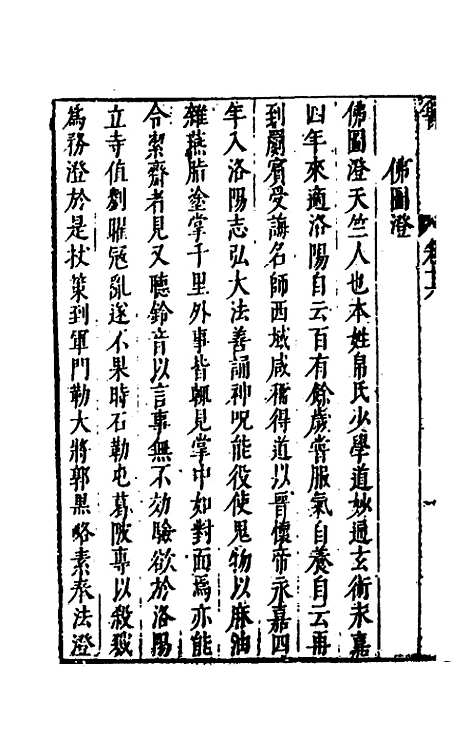 佛圖澄
佛圖澄天竺人也本姓帛氏少學道妙通玄術永嘉
四年來適洛陽自云百有餘歲嘗服氣自養自云再
到罽賓受誨名師西域咸稱得道以晉懷帝永嘉四
年入洛陽志弘大法善誦神呪能役使鬼物以麻油
雜燕脂塗掌千里外事皆輒見掌中如對面焉亦能
令絜齋者見又聽鈴音以言事無不効驗欲於洛陽
立寺值劉曜寇亂遂不果時石勒屯葛陂專以殺戮
爲務澄於是杖策到軍門勒大將郭黒略素奉法澄